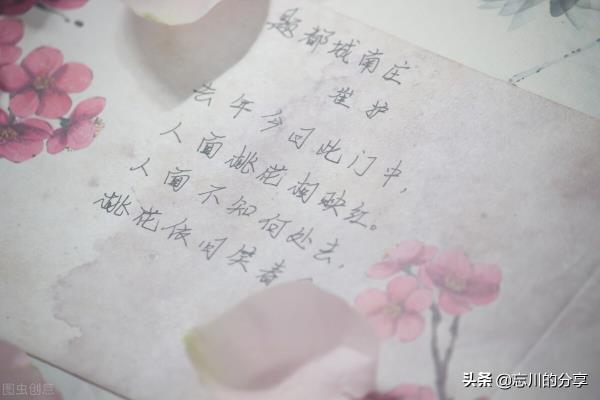 题都城南庄
崔护
去年今日此门中,
人面桃花相映红。
人面不知何处去,
桃花依旧笑春
图虫创意
头条 @忘川的分享